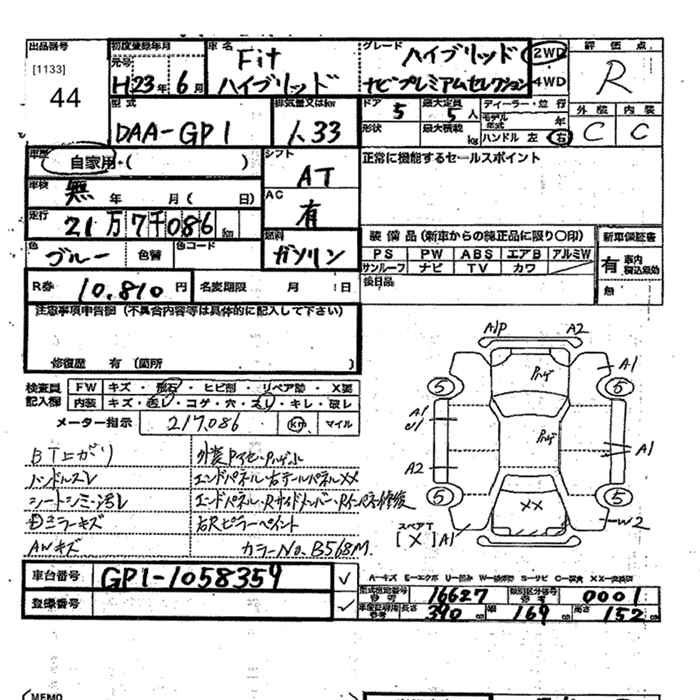 出品番号 初度登録年月 車名 グレード 評価点
[1133] 元号 Fit ハイブリッド 2WD R
44 H23年6月 ハイブリッド ナビプレミアムセレクション 4WD
型式 排気量又は ドア 5 最大定員 5人 ディーラー・並行 外装 内装
DAA-GP1 1.33 形状 最大積載 kg モデル年式 年 C C
ハンドル 左 右
車歴 自家用・( ) シフト AT 正常に機能するセールスポイント
車検 無 年 月( 日) AC 有
走行 21万7千086km 燃料 ガソリン 装備品(新車からの純正品に限り○印) 新車保証書
色 ブルー 色替 色コード PS PW ABS エアB アルミW 有 車内
サンルーフ ナビ TV カワ 無
R券 10,810円 名変期限 月 日 後日品
注意事項申告欄(不具合内容等は具体的に記入して下さい)
修復歴 有 (箇所 )
検査員記入欄 FW キズ・飛石・ヒビ割・リペア跡・X要
内装 キズ・汚レ・コゲ・穴・スレ・キレ・破レ
メーター指示 217,086 km マイル
BT上がり
ハンドルスレ エンドパネル・右テールパネルXX
シートシミ・汚レ エンドパネル・Rサイドメンバー・Rインパネ修復
ミラーキズ 右Rピラーペイント
AWキズ カラーNo.B568M.
A1P A2
A1
5 5
A1 A1
A2
5 5
XX
スペアT
[X] A1 W2
車台番号 GP1-1058359
登録番号
型式指定番号 16627 類別区分番号 0001
長さ 390 cm 幅 169 cm 高さ 152 cm
MEMO